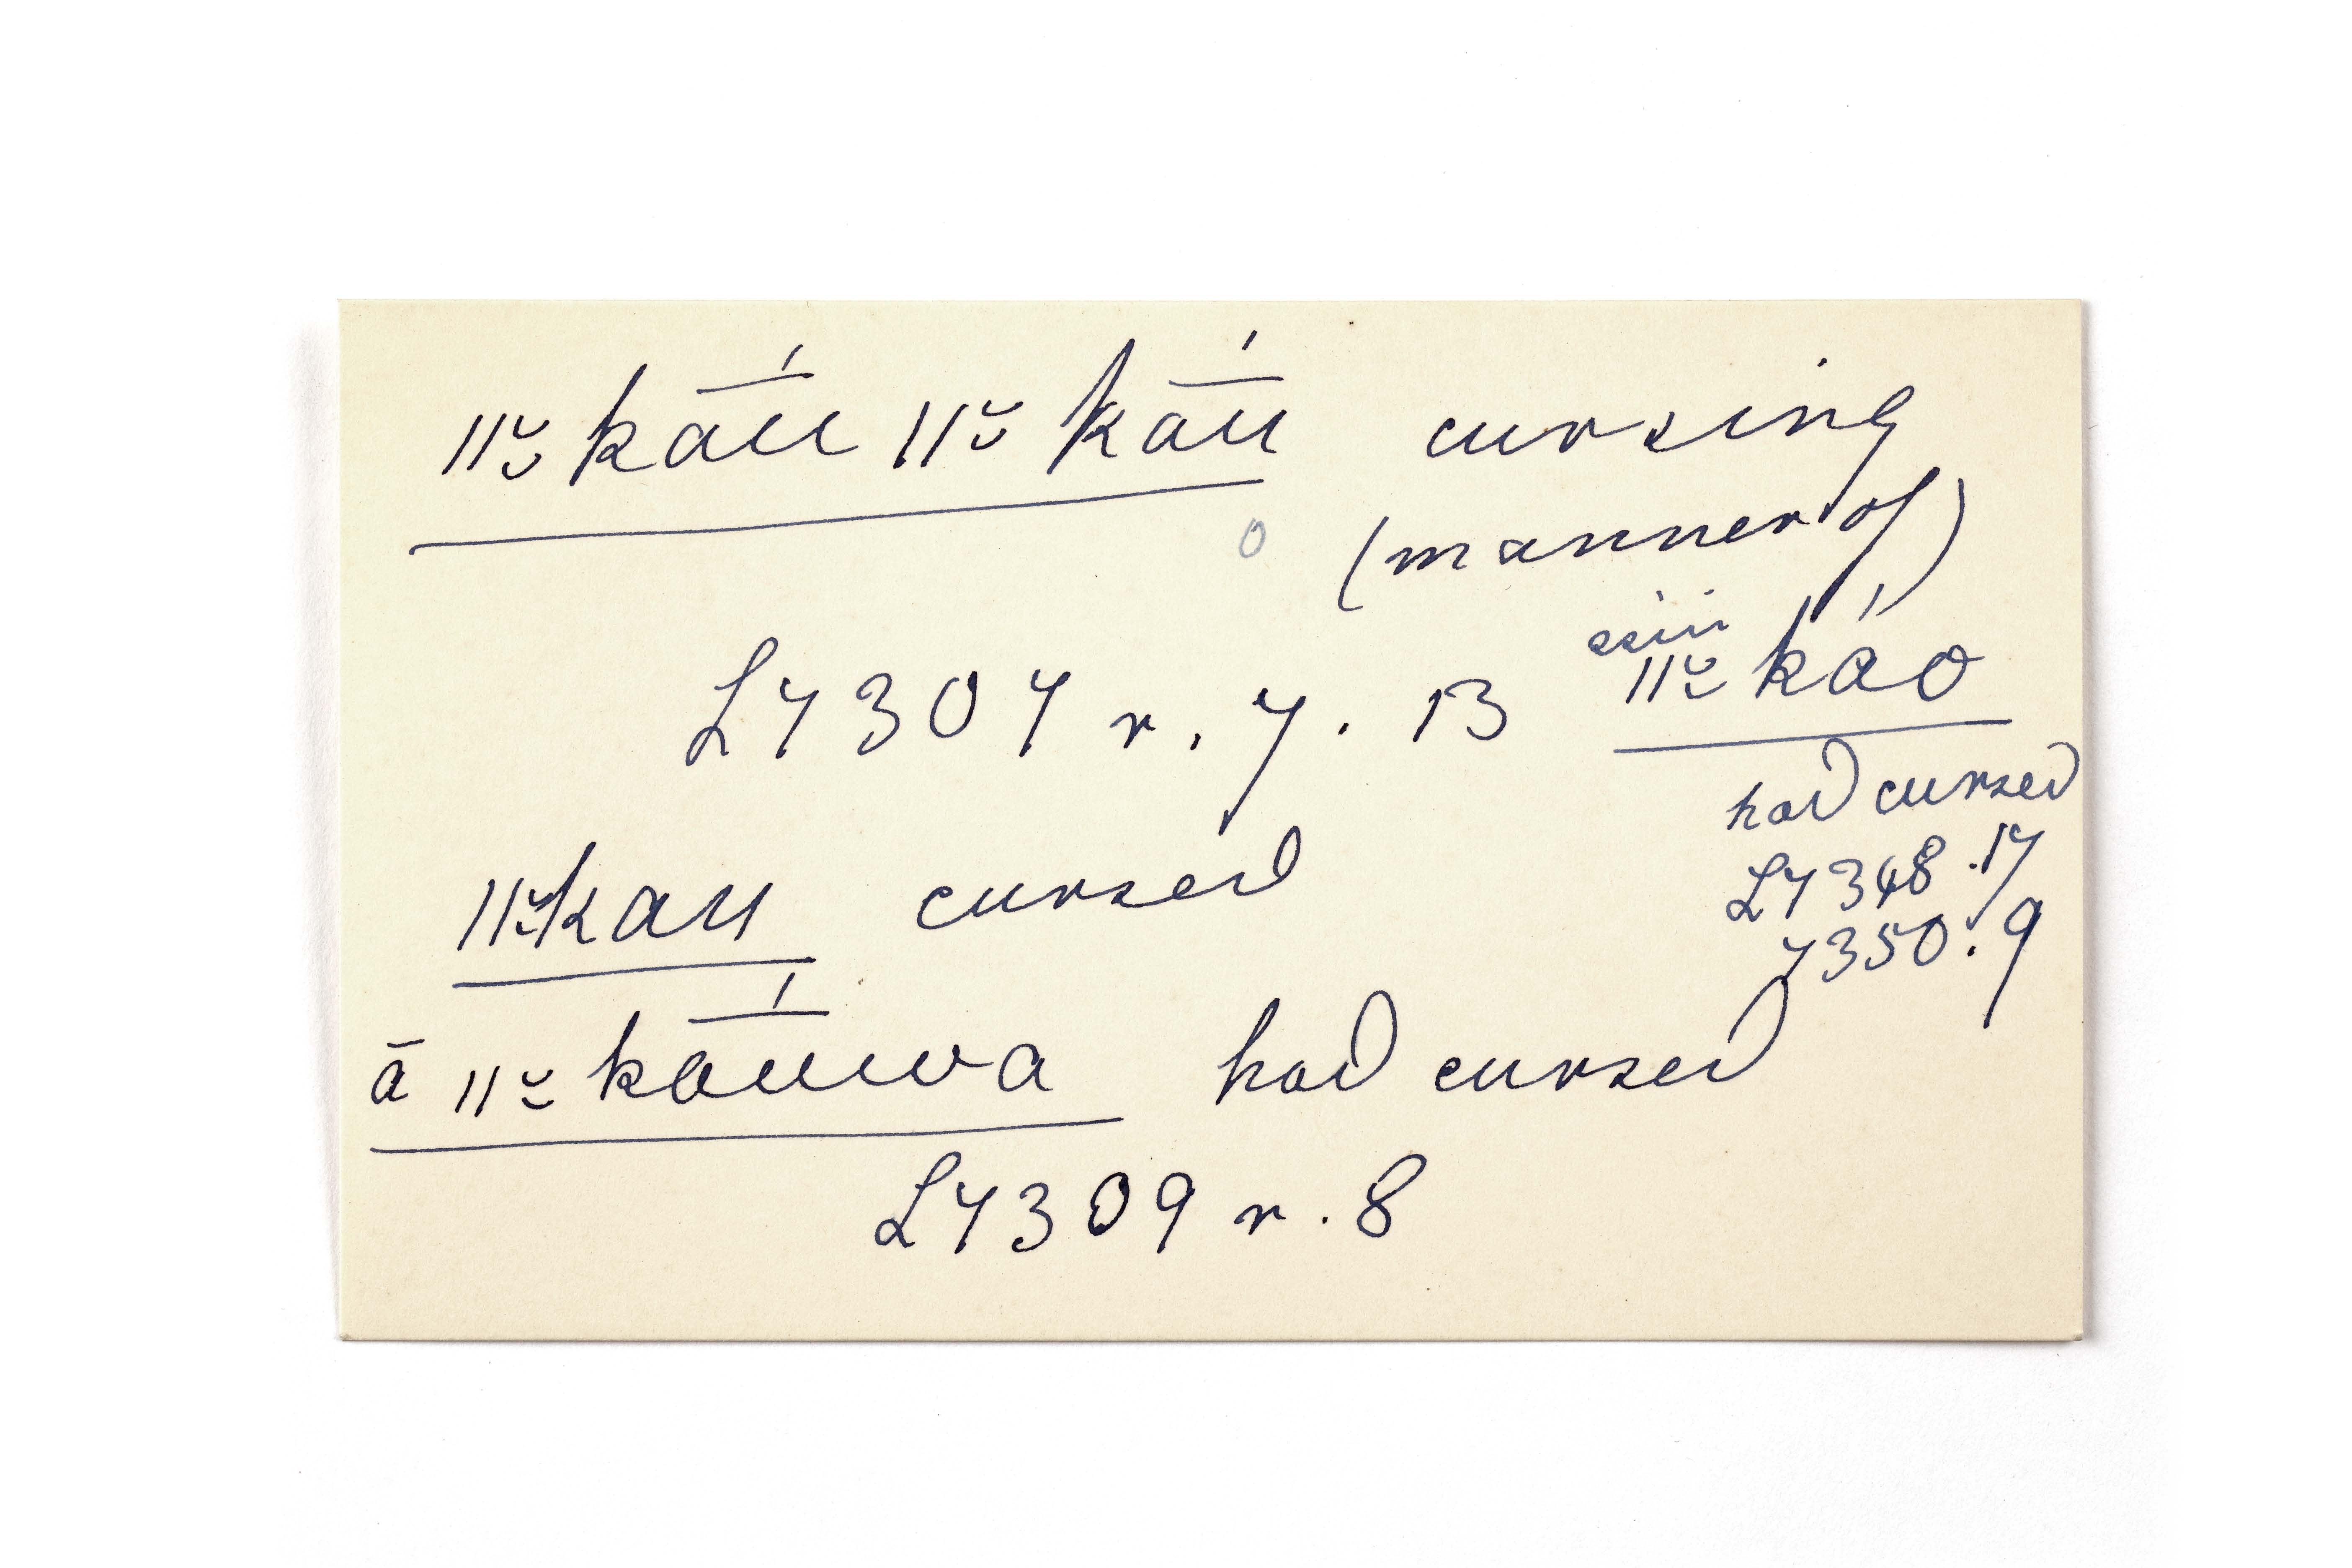 ǁ̆ kā́u ǁ̆ kā́u cursing
(manner of)
L7307 r. 7. 13
ǁ̆ káo
had cursed
L7348.17
7350.9
ǁ̆kau cursed
ā ǁ̆ kā́uwa had cursed
L7309 r. 8